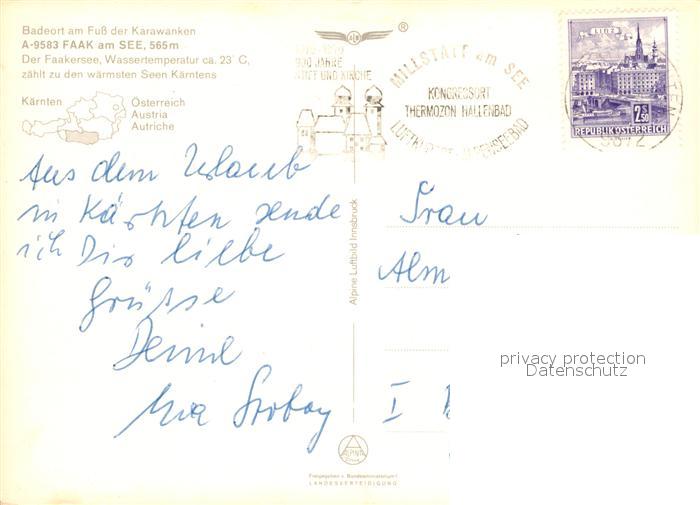 Badeort am Fuß der Karawanken
A-9583 FAAK am SEE, 565m
Der Faakersee, Wassertemperatur ca. 23° C,
zählt zu den wärmsten Seen Kärntens
Kärnten
Österreich
Austria
Autriche
®
900 JAHRE
STIFT UND KIRCHE
MILLSTATT am SEE
KONGRESSORT
THERMOZON HALLENBAD
LINZ
2.50
REPUBLIK ÖSTERREICH
Aus dem Urlaub
in Kärnten sende
ich Dir liebe
Grüsse
Deine
Frau
Alm
I
Alpine Luftbild Innsbruck
privacy protection
Datenschutz
ALPINE
Freigegeben v. Bundesministerium f.
LANDESVERTEIDIGUNG